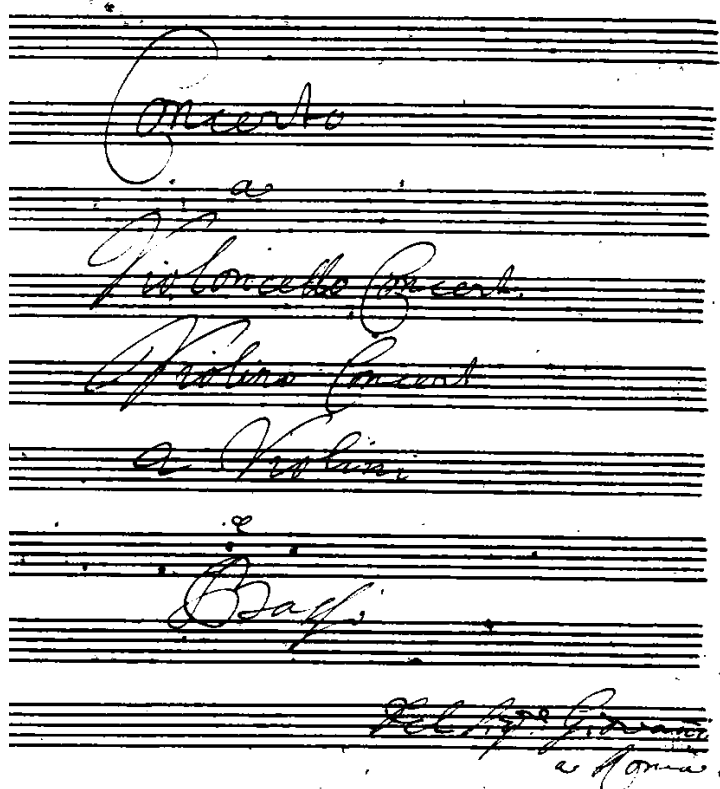 Concerto
a
Violoncello Concert.
Violino Concert
2 Violini
e
Bassi
Del Sigre. Giovani
a Roma.